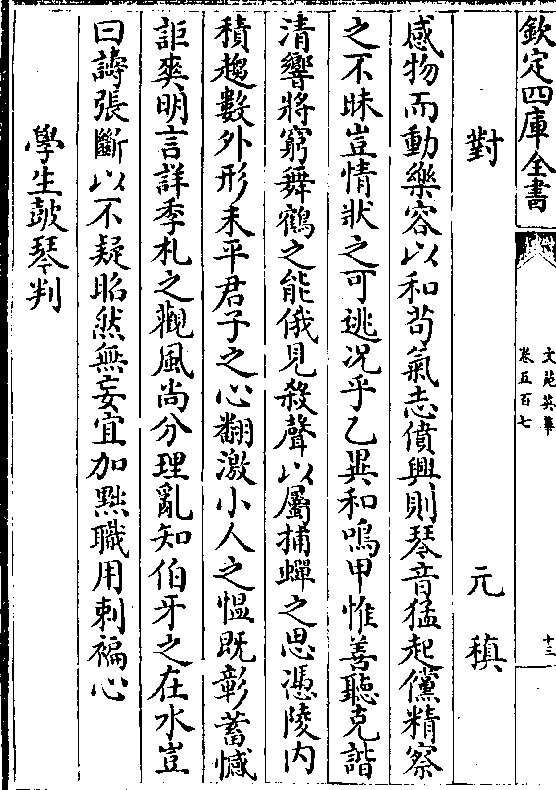 欽定四庫全書
文苑英華
卷五百七
十三
對
元稹
感物而動樂容以和苟氣志僨興則琴音猛起儻精察
之不昧豈情狀之可逃况乎乙異和鳴甲惟善聽克諧
清響將窮舞鶴之能俄見殺聲以屬捕蟬之思憑陵内
積趨數外形未平君子之心翻激小人之愠既彰蓄憾
詎爽明言詳季札之觀風尚分理亂知伯牙之在水豈
曰譸張斷以不疑昭然無妄宜加黜職用刺褊心
學生鼓琴判